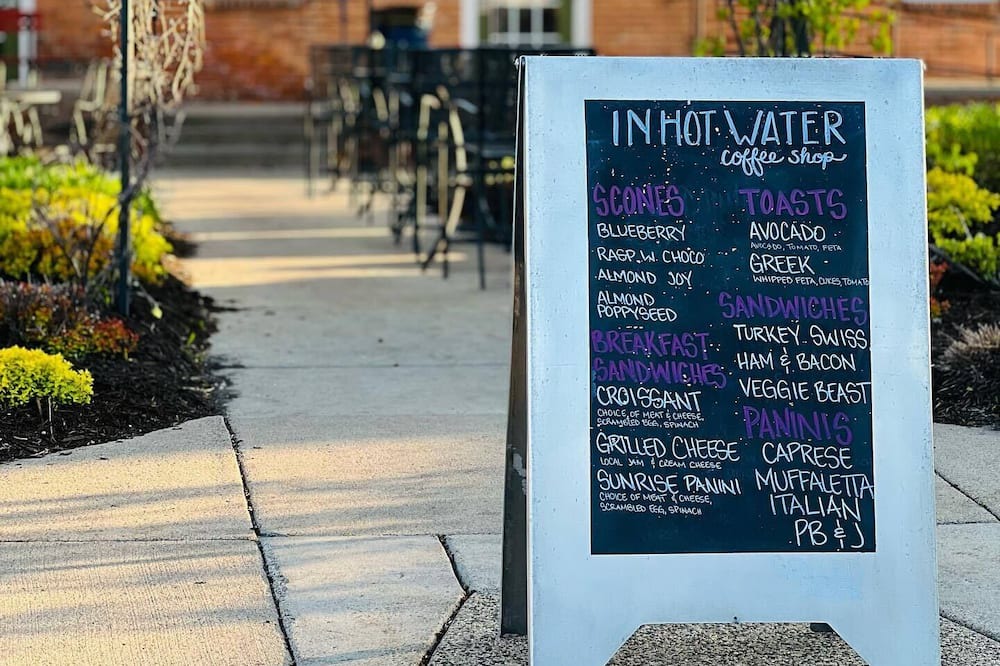 IN HOT WATER
coffee shop
SCONES
BLUEBERRY
RASP. W. CHOCO
ALMOND JOY
ALMOND
POPPYSEED
BREAKFAST
SANDWICHES
CROISSANT
CHOICE OF MEAT & CHEESE,
SCRAMBLED EGG, SPINACH
GRILLED CHEESE
LOCAL JAM & CREAM CHEESE
SUNRISE PANINI
CHOICE OF MEAT & CHEESE,
SCRAMBLED EGG, SPINACH
TOASTS
AVOCADO
AVOCADO, TOMATO, FETA
GREEK
WHIPPED FETA, CUKES, TOMATO
SANDWICHES
TURKEY SWISS
HAM & BACON
VEGGIE BEAST
PANINIS
CAPRESE
MUFFALETTA
ITALIAN
PB & J